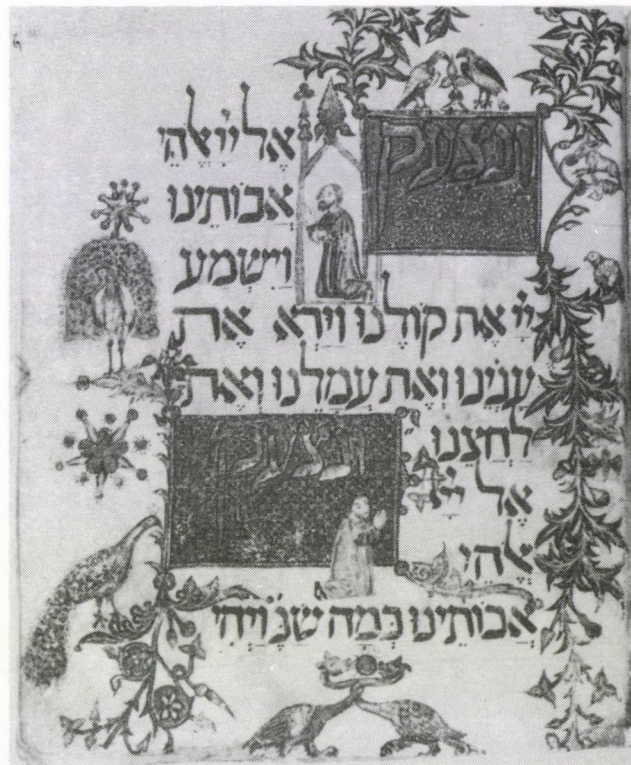 ונצעק אל יי אלהי
אבותינו
וישמע
יי את קולנו וירא את
ענינו ואת עמלנו ואת
לחצנו
ונצעק
אל יי
אלהי
אבותינו כמה שנ ויהי